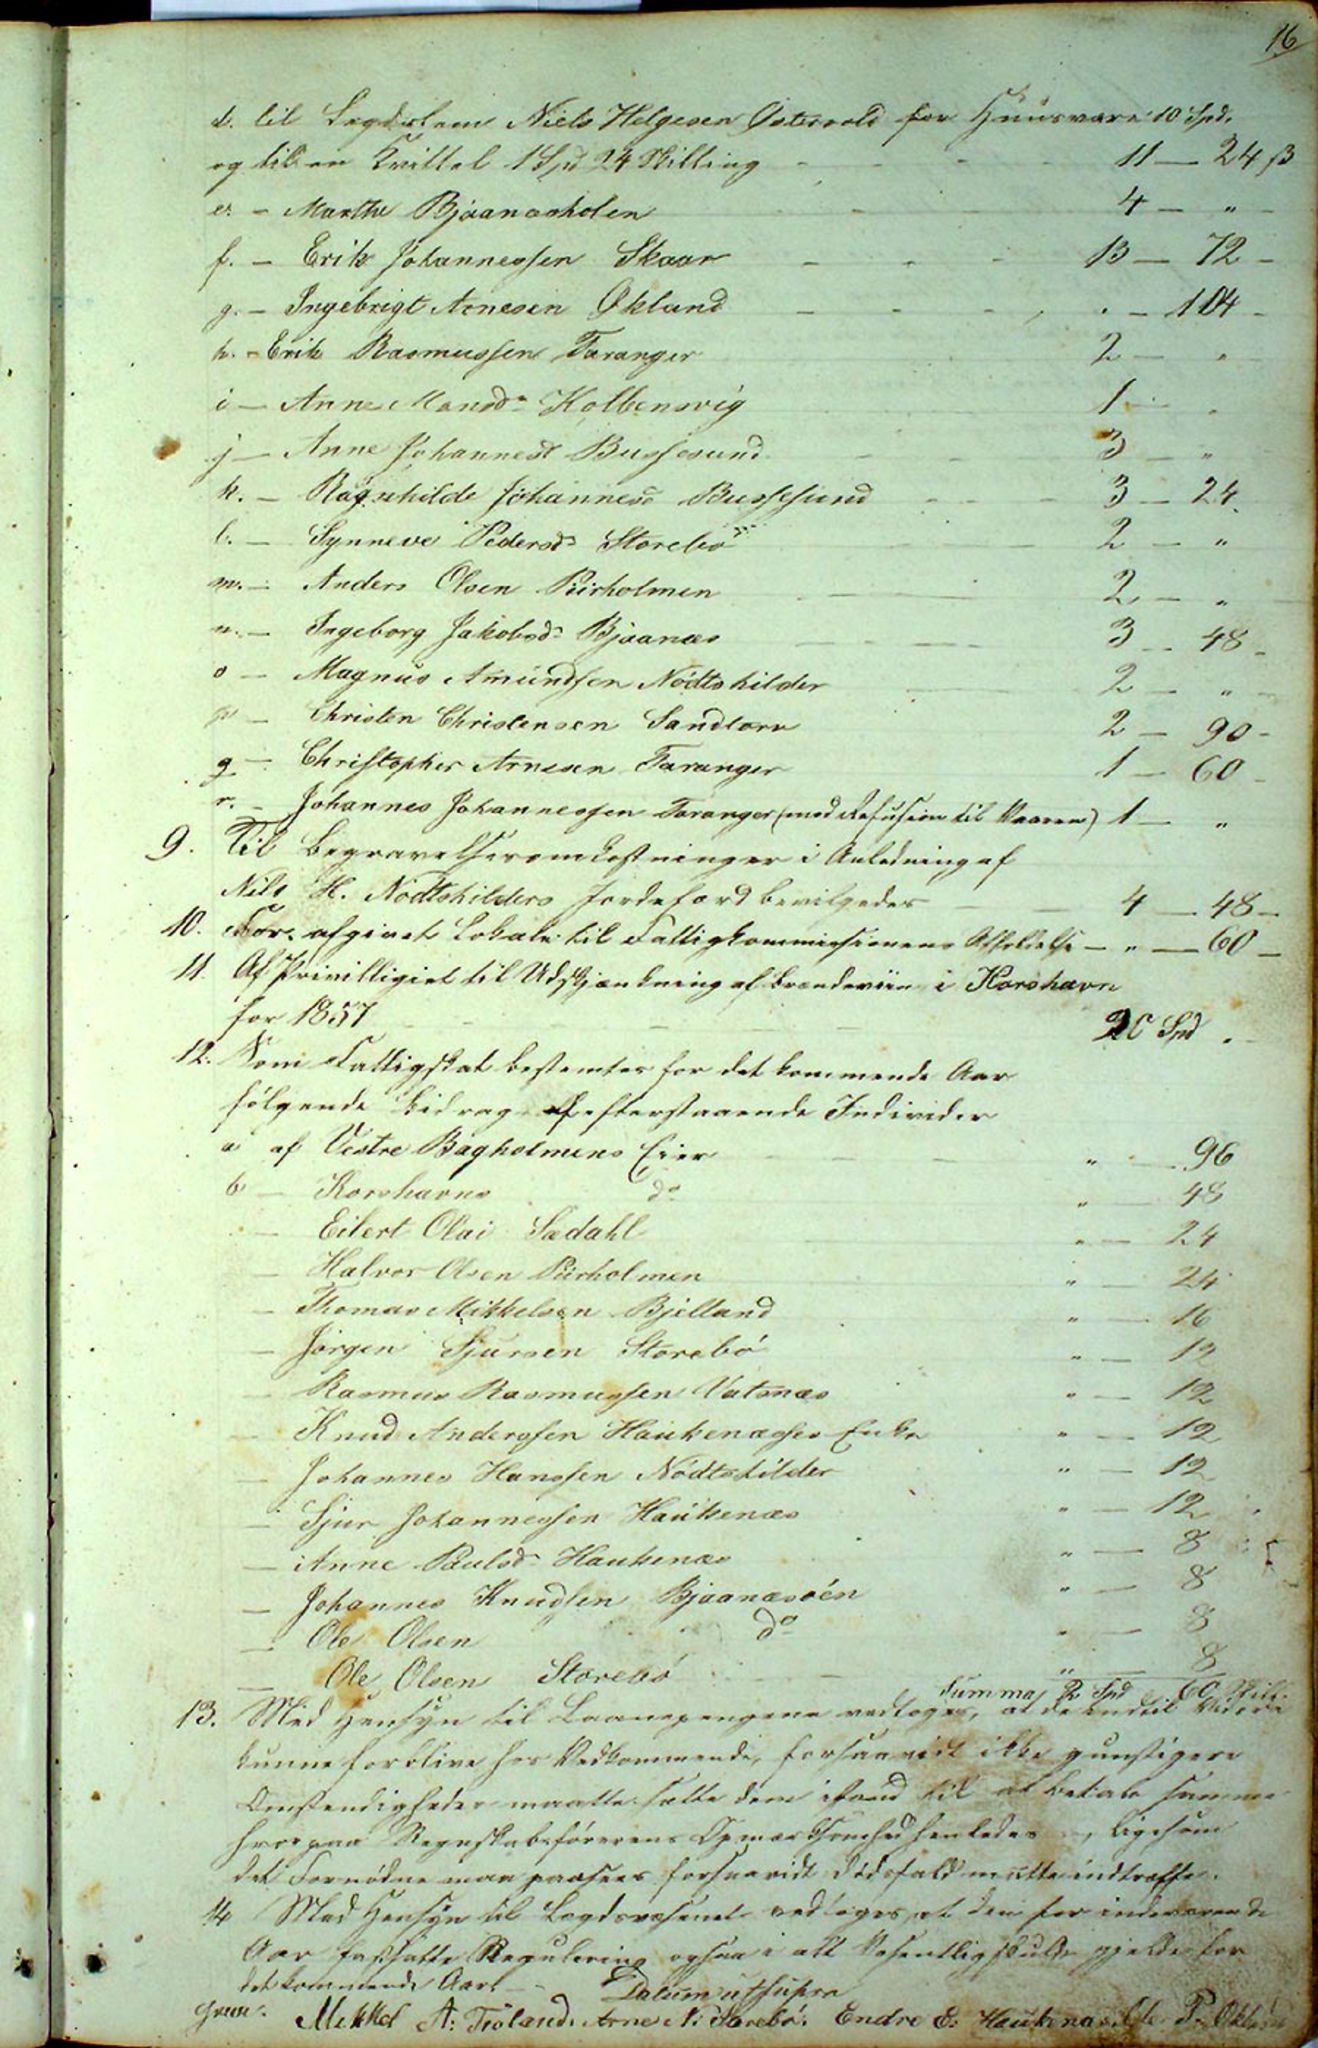 16
d. til Lægdslem Niels Helgesen Østervold for Huusvære 10 Spd.
og til en Kvittel 1 Spd 24 Skilling - - - 11 — 24 ß
e. - Marthe Bjaanæsholen - - 4 — " -
f. — Erik Johannessen Skaar - - - 13 — 72 -
g. — Ingebrigt Arnesen Økland - - - " — 104 -
h. - Erik Rasmussen Taranger 2 — "
i — Anne Monsdr Kolbensvig 1 — "
j — Anne Johannesd Bussesund - - 3 — "
k. — Ragnhilde Johannesd Bussesund - - - 3 — 24
l. — Synneve Pedersdr Storebø — 2 — "
m. — Anders Olsen Piirholmen — 2 — "
n. — Ingeborg Jakobsdr Bjaanæs — 3 — 48 -
o — Magnus Amundsen Nødtskilder — 2 — " -
p — Christen Christensen Sandtorv 2 — 90 -
q — Christopher Arnesen Taranger 1 — 60 -
r. - Johannes Johannessen Taranger (mod Refusion til Vaaren) 1 — "
9. Til Begravelsesomkostninger i Anledning af
Nils H. Nødtskilders Jordefærd bevilgedes — 4 — 48 -
10. For afgivet Lokale til Fattigkommissionens Afholdelse — " — 60 -
11. Af Privilligiet til Udskjænkning af Brændeviin i Korshavn
for 1857 — 20 Spd "
12. Som Fattigskat bestemtes for det kommende Aar
følgende Bidrag af efterstaaende Individer
a af Vestre Bagholmens Eier — " — 96
b — Korshavns do " — 48
— Eilert Olai Sædahl " — 24
— Halvor Olsen Piirholmen " — 24
— Thomas Mikkelsen Bjelland " — 16
— Jørgen Sjursen Storebø " — 12
— Rasmus Rasmussen Vatsnæs " — 12
— Knud Anderssen Haukenæsses Enke " — 12
— Johannes Hanssen Nødtskilder " — 12
— Sjur Johannessen Haukenæs " — 12
— Anne Paulsdr Haukenæs " — 8
— Johannes Knudsen Bjaanæsøen " — 8
— Ole Olsen do " — 8
— Ole Olsen Storebø — " — 8
Summa 2 Spd 60 Skill.
13. Med Hensyn til Laanepengene vedtoges, at de indtil Videre
kunne forblive hos Vedkommende, forsaavidt ikke gunstigere
Omstendigheder maatte sætte dem istand til at betale samme
hvorpaa Regnskabsførerens Opmærksomhed henledes —, ligesom
det Fornødne maa paasees forsaavidt Dødsfald maatte indtræffe.
14 Med Hensyn til Lægdsvæsenet vedtoges, at den for indeværende
Aar fastsatte Regulering ogsaa i alt Væsentligt skulde gjelde for
det kommende Aar. — Datum ut supra
Grun. Mikkel A: Trøland. Arne N: Storebø. Endre E. Haukenæs. Ole P. Økland